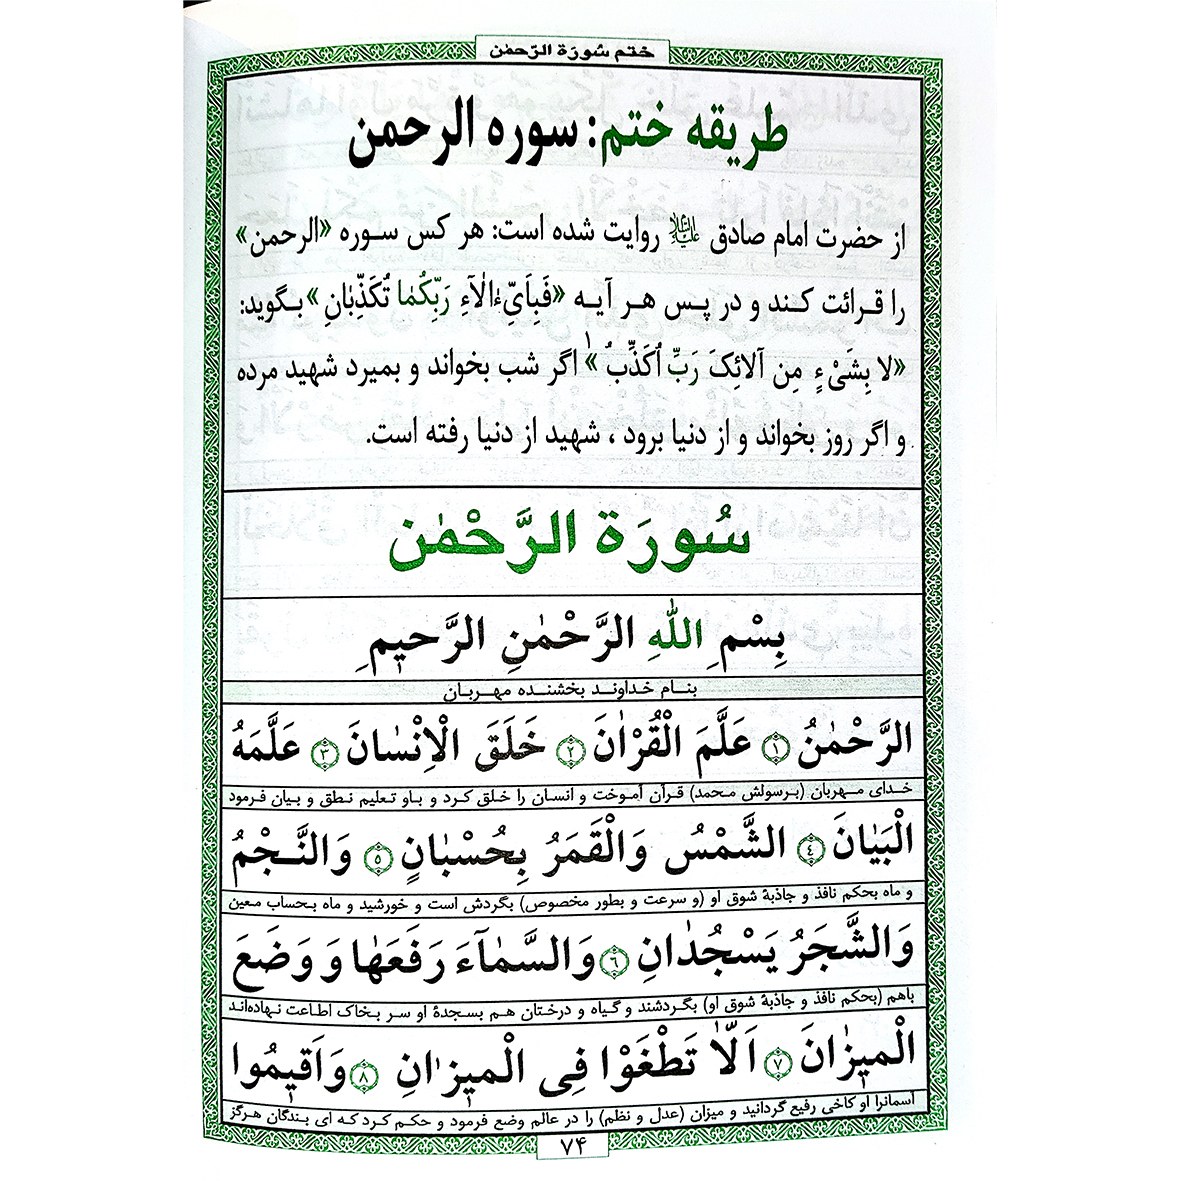 ختم سُورَة الرّحمٰن
طریقه ختم: سوره الرحمن
از حضرت امام صادق علیه‌السلام روایت شده است: هر کس سوره «الرحمن»
را قرائت کند و در پس هر آیه «فَبِاَیِّ ءٰالآءِ رَبِّکُمٰا تُکَذِّبٰانِ» بگوید:
«لا بِشَیْءٍ مِن آلائِکَ رَبِّ اُکَذِّبُ»۱ اگر شب بخواند و بمیرد شهید مرده
و اگر روز بخواند و از دنیا برود ، شهید از دنیا رفته است.
سُورَة الرَّحْمٰن
بِسْمِ اللهِ الرَّحْمٰنِ الرَّحیمِ
بنام خداوند بخشنده مهربان
الرَّحْمٰنُ ۱ عَلَّمَ الْقُرْاٰنَ ۲ خَلَقَ الْاِنْسٰانَ ۳ عَلَّمَهُ
خدای مهربان (برسولش محمد) قرآن آموخت و انسان را خلق کرد و باو تعلیم نطق و بیان فرمود
الْبَیٰانَ ٤ الشَّمْسُ وَالْقَمَرُ بِحُسْبٰانٍ ۵ وَالنَّجْمُ
و ماه بحکم نافذ و جاذبهٔ شوق او (و سرعت و بطور مخصوص) بگردش است و خورشید و ماه بحساب معین
وَالشَّجَرُ یَسْجُدٰانِ ٦ وَالسَّمٰآءَ رَفَعَهٰا وَ وَضَعَ
باهم (بحکم نافذ و جاذبهٔ شوق او) بگردشند و گیاه و درختان هم بسجدهٔ او سر بخاک اطاعت نهاده‌اند
الْمیزٰانَ ۷ اَلّاٰ تَطْغَوْا فِی الْمیزٰانِ ۸ وَاَقیمُوا
آسمانرا او کاخی رفیع گردانید و میزان (عدل و نظم) را در عالم وضع فرمود و حکم کرد که ای بندگان هرگز
۷۴